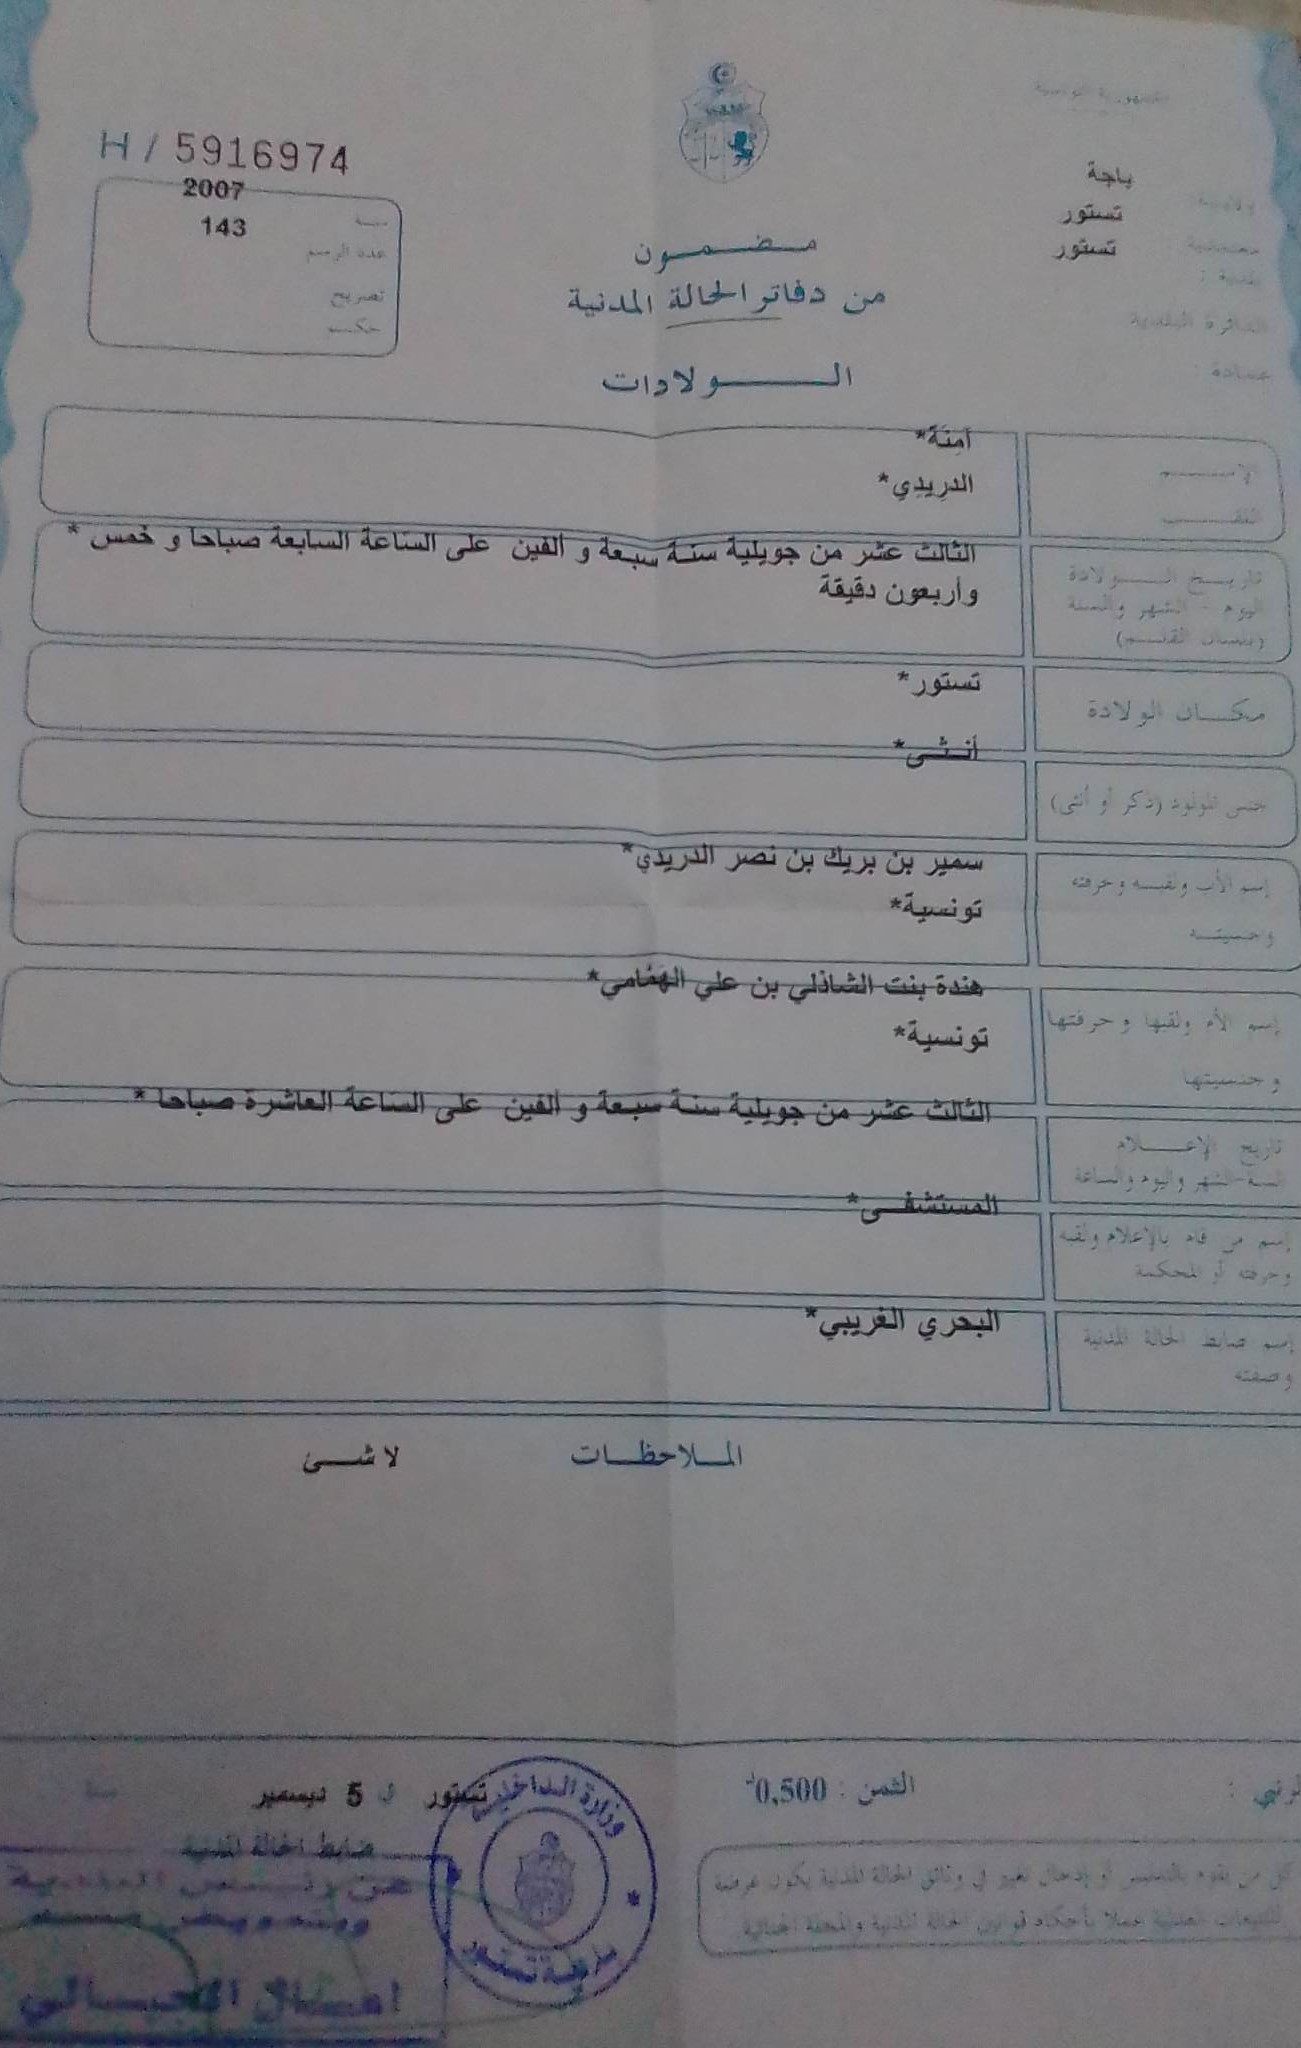 الجمهورية التونسية
H / 5916974
ولاية : باجة
معتمدية : تستور
بلدية : تستور
الدائرة البلدية
عمادة :
سنة 2007
عدد الرسم 143
تصريح
حكم
مضمون
من دفاتر الحالة المدنية
الولادات
الإسم آمنة*
اللقب الدريدي*
تاريخ الولادة
اليوم - الشهر والسنة
(بلسان القلم)
الثالث عشر من جويلية سنة سبعة و ألفين على الساعة السابعة صباحا و خمس *
وأربعون دقيقة
مكان الولادة تستور*
جنس المولود (ذكر أو أنثى) أنثى*
إسم الأب ولقبه وحرفته
وجنسيته
سمير بن بريك بن نصر الدريدي*
تونسية*
إسم الأم ولقبها وحرفتها
وجنسيتها
هندة بنت الشاذلي بن علي الهمامي*
تونسية*
تاريخ الإعلام
السنة-الشهر واليوم والساعة
الثالث عشر من جويلية سنة سبعة و ألفين على الساعة العاشرة صباحا *
إسم من قام بالإعلام ولقبه
وحرفته أو المحكمة
المستشفى*
إسم ضابط الحالة المدنية
وصفته
البحري الغريبي*
الملاحظات لا شئ
الثمن : 0,500
تستور في 5 ديسمبر
ضابط الحالة المدنية
عن رئيس البلدية
وبتفويض منه
وزارة الداخلية
بلدية تستور
كل من يقوم بالتدليس أو إدخال تغيير في وثائق الحالة المدنية يكون عرضة
للتتبعات العدلية عملا بأحكام قوانين الحالة المدنية والمجلة الجنائية